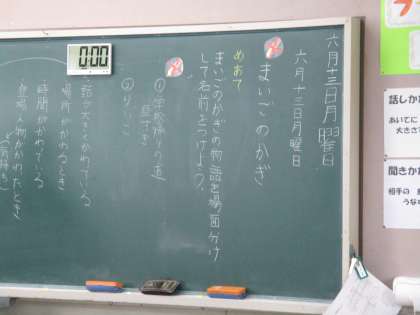 六月十三日月曜日
六月十三日月曜日
まいごのかぎ
めあて
まいごのかぎの物語を場面分け
して名前をつけよう。
①学校帰りの道
②りいこ
話が大きくかわっている
場所がかわるとき
時間がかわっている
登場人物がかわったとき
0:00
話しかた
あいてに
大きさ
聞きかた
相手の
うな